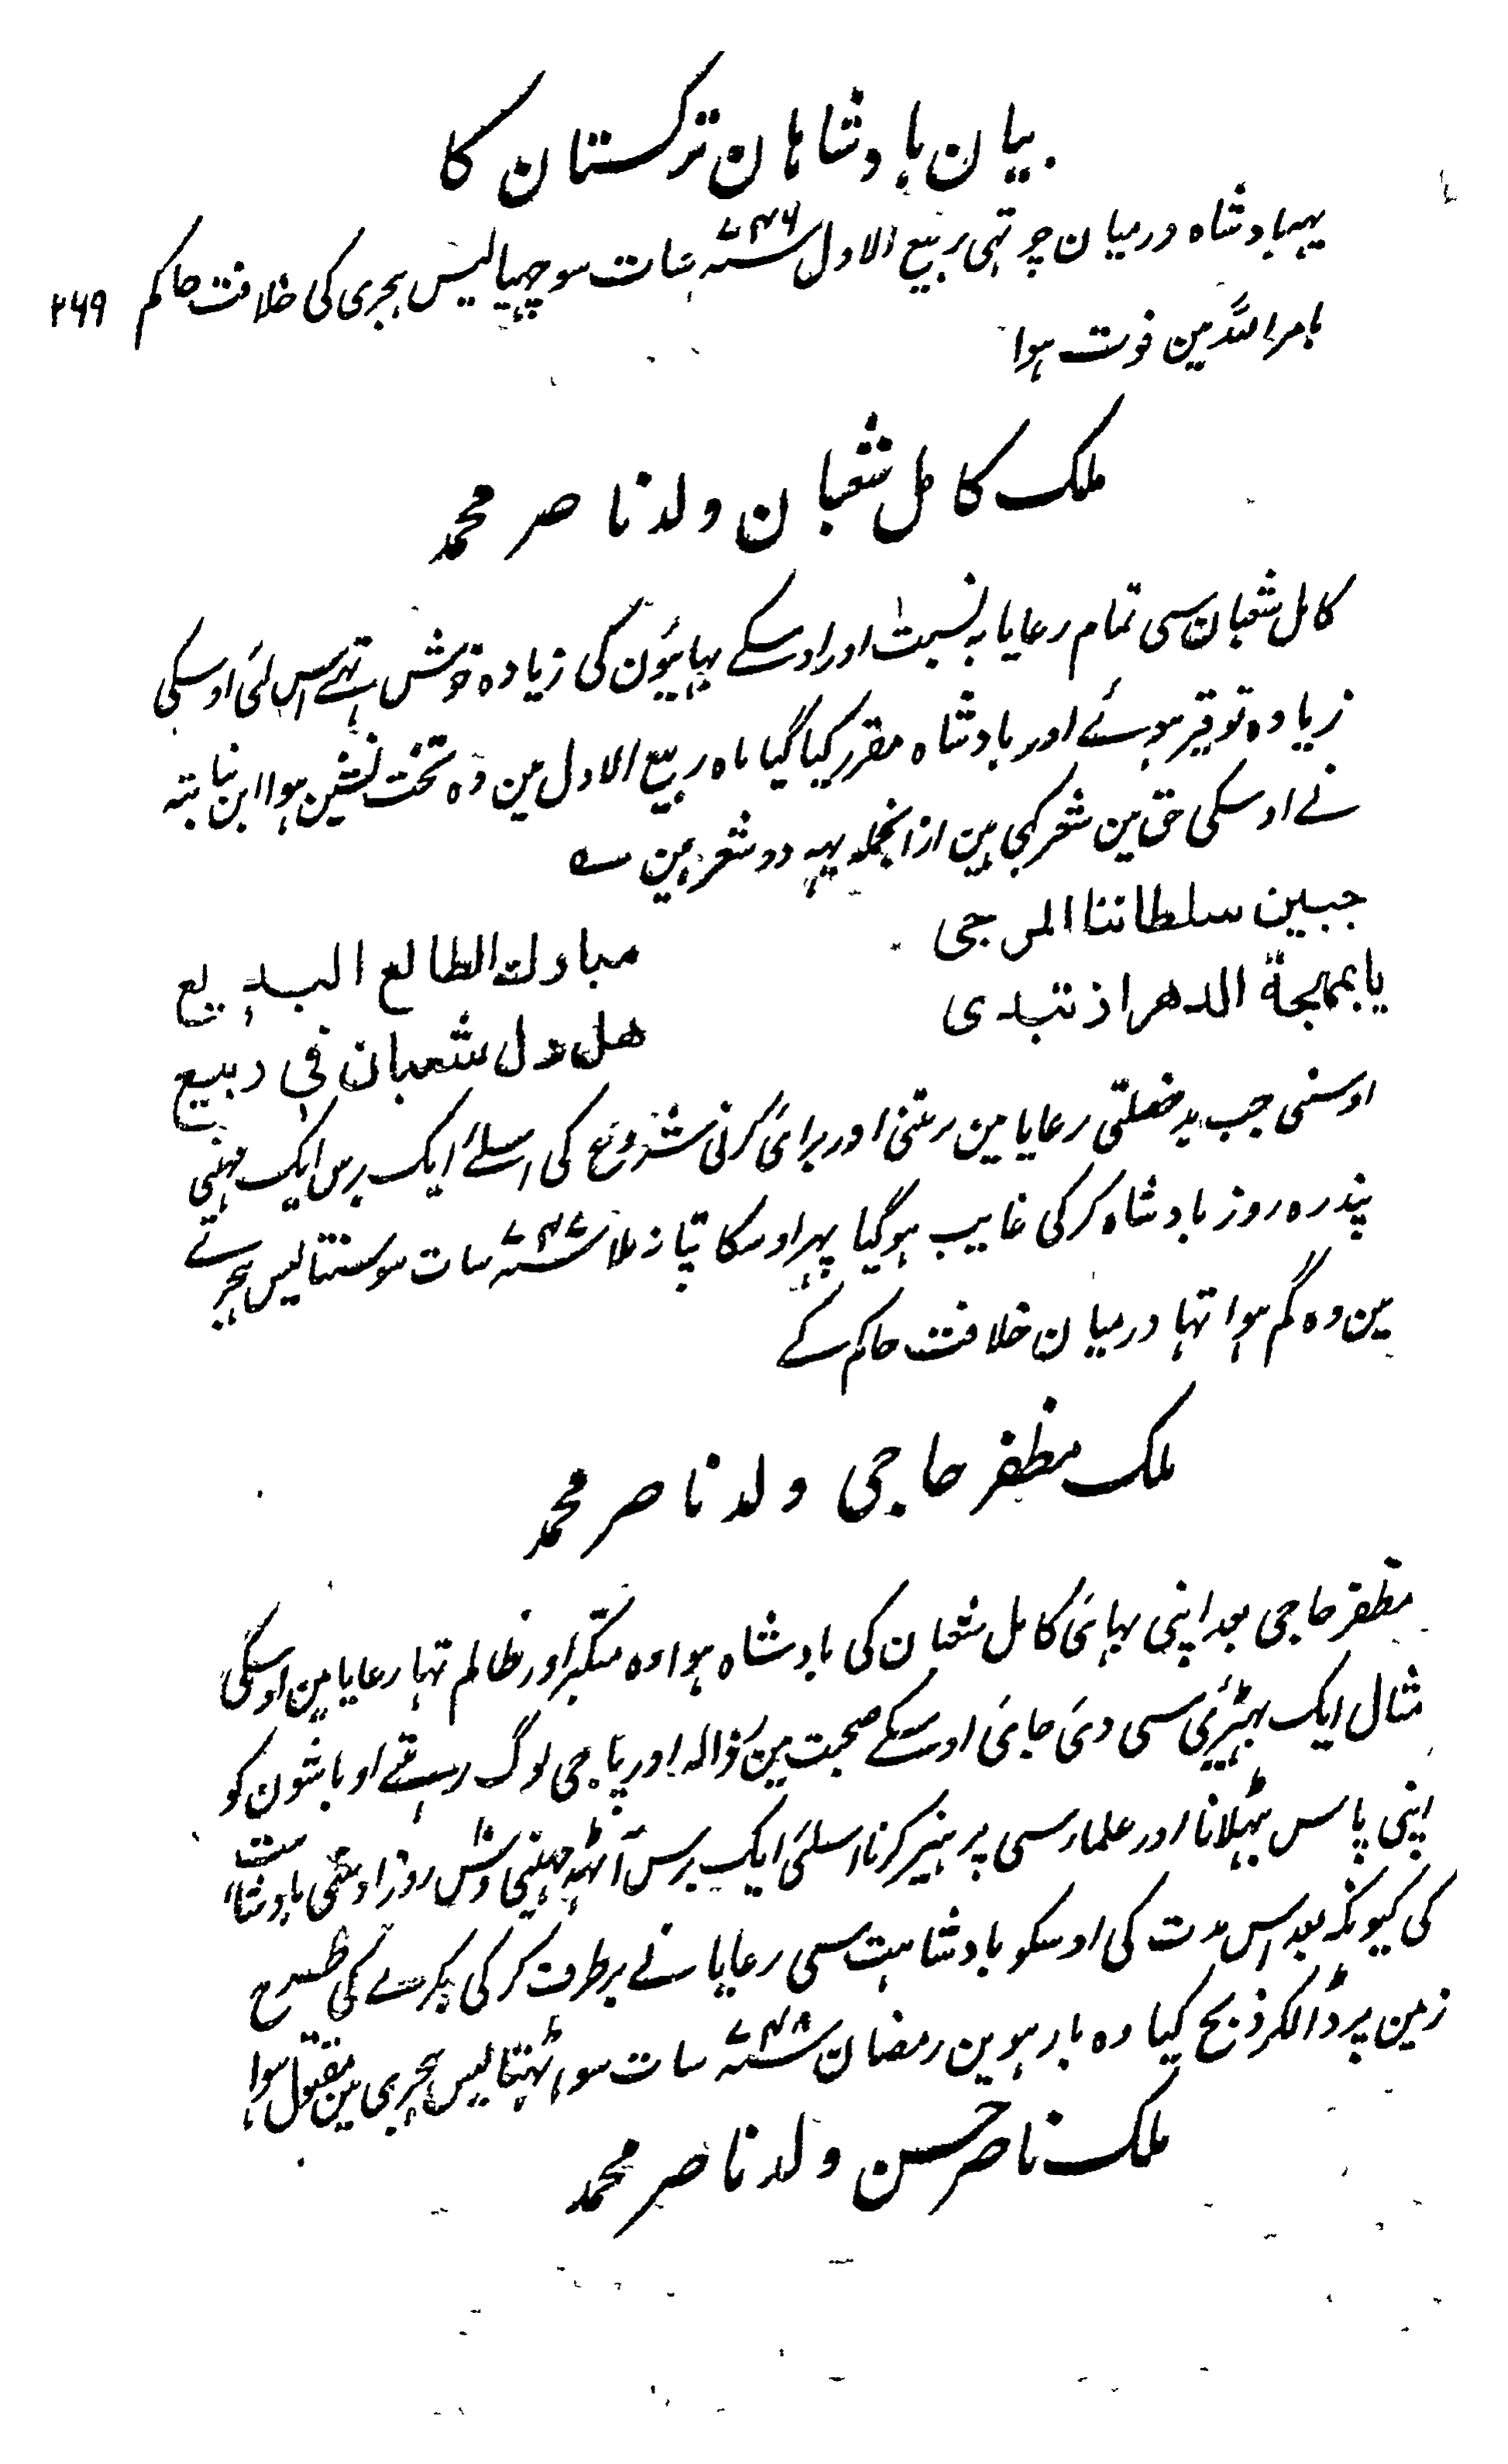 بیان بادشاہان ترکستان کا
یہہ بادشاہ درمیان چوتہی ربیع الاول ۷۴۶؁ سات سو چہیالیس ہجری کی خلافت حاکم ۲۶۹
بامر اللہ مین فوت ہوا
ملک کامل شعبان ولد ناصر محمد
کامل شعبان سی تمام رعایا بہ نسبت اور اوسکے بہائیون کی زیادہ خوش تہے اس لئی اوسکی
زیادہ توقیر ہوئے اور بادشاہ مقرر کیا گیا ماہ ربیع الاول مین وہ تخت نشین ہوا ابن نباتہ
نے اوسکی حق مین شعر کہی ہین ازانجملہ یہہ دو شعر ہین ؎
جبین سلطاننا المرجی مبارك الطالع البدیع
یا بهجة الدهر اذ تبدی هلال شعبان فی ربیع
اوسنی جب بد خصلتی رعایا مین برتنی اور برائی کرنی شروع کی اسلئے ایک برس ایک مہنی
پندرہ روز بادشاہ کر کی غایب ہوگیا پہر اوسکا پتا نہ ملا ۷۴۷؁ سات سو سنتالیس ہجرے
مین وہ گم ہوا تہا درمیان خلافت حاکم کے
ملک مظفر حاجی ولد ناصر محمد
مظفر حاجی بعد اپنی بہائی کامل شعبان کی بادشاہ ہوا وہ متکبر اور ظالم تہا رعایا مین اوسکی
مثال ایک بہیڑئی سی دی جائی اوسکے صحبت مین رذالہ اور پاجی لوگ رہتے اوباشون کو
اپنی پاس بہٹلانا اور علماء سی پرہیز کرنا اسلئی ایک برس آٹہہ مہینی دس روز اوسنی بادشاہت
کی کیونکہ بعد اس مدت کی اوسکو بادشاہت سی رعایا نے برطرف کر کی بکرے کی طرح
زمین پر ڈالکر ذبح کیا وہ بارہوین رمضان ۷۴۸؁ سات سو اٹہتالیس ہجری مین مقتول ہوا
ملک ناصر حسن ولد ناصر محمد